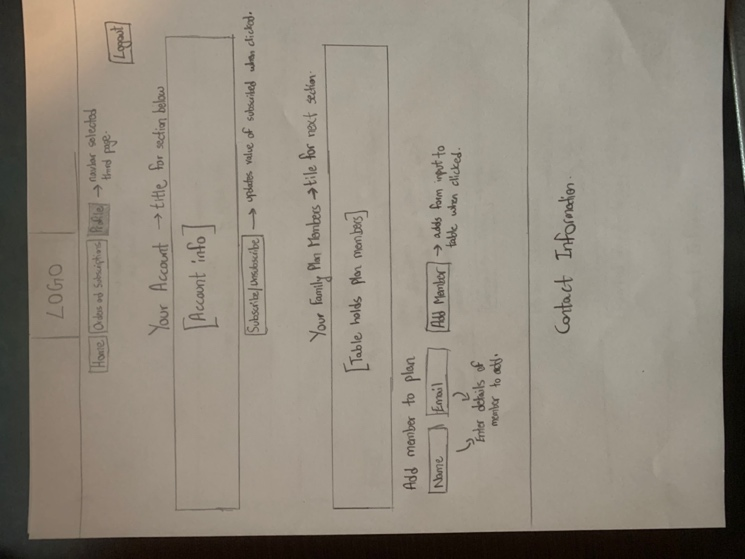 LOGO
Home Orders and Subscriptions Profile → navbar selected
third page.
Logout
Your Account → title for section below
[Account info]
Subscribe/Unsubscribe → updates value of subscribed when clicked.
Your Family Plan Members → tile for next section.
[Table holds plan members]
Add member to plan
Name Email Add Member → adds form input to
table when clicked.
Enter details of
member to add.
Contact Information.